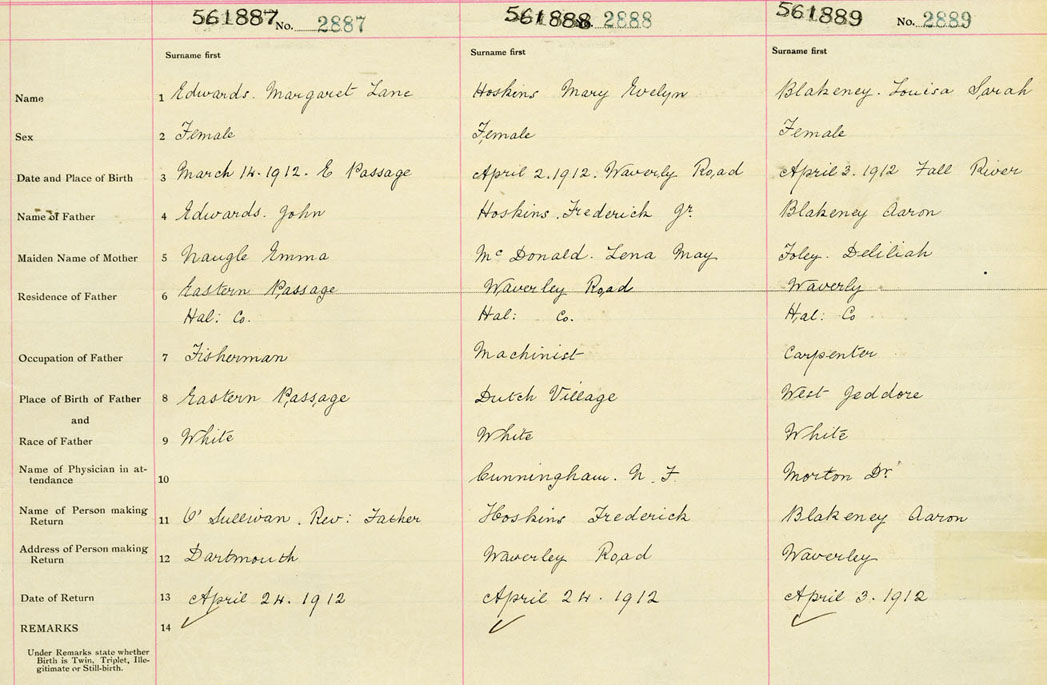 561887 No. 2887 561888 No. 2888 561889 No. 2889
Surname first Surname first Surname first
Name 1 Edwards. Margaret Lane Hoskins Mary Evelyn Blakeney. Louisa Sarah
Sex 2 Female Female Female
Date and Place of Birth 3 March 14. 1912. E Passage April 2. 1912. Waverly Road April 3. 1912 Fall River
Name of Father 4 Edwards. John Hoskins. Frederick Jr. Blakeney Aaron
Maiden Name of Mother 5 Naugle Emma Mc Donald. Lena May Foley. Deliliah
Residence of Father 6 Eastern Passage Waverley Road Waverly
Hal: Co. Hal: Co. Hal: Co
Occupation of Father 7 Fisherman Machinist Carpenter
Place of Birth of Father 8 Eastern Passage Dutch Village West Jeddore
and
Race of Father 9 White White White
Name of Physician in at-
tendance 10 Cunningham. N. F. Morton Dr.
Name of Person making
Return 11 O'Sullivan. Rev: Father Hoskins Frederick Blakeney Aaron
Address of Person making
Return 12 Dartmouth Waverley Road Waverley
Date of Return 13 April 24. 1912 April 24. 1912 April 3. 1912
REMARKS 14
Under Remarks state whether
Birth is Twin, Triplet, Ille-
gitimate or Still-birth.